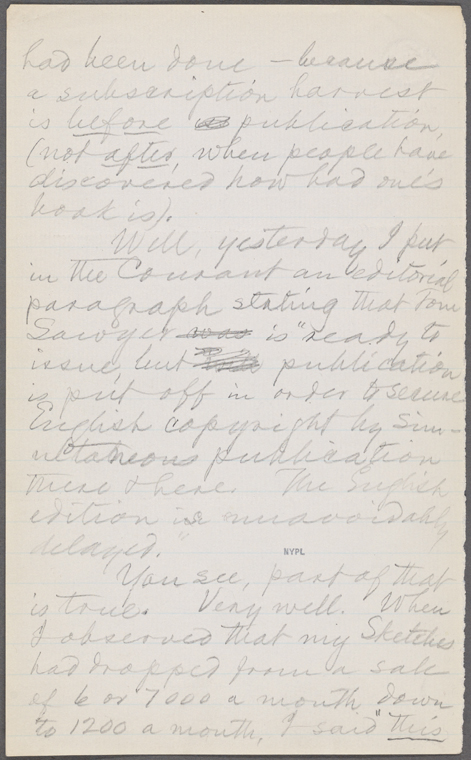 had been done — because
a subscription harvest
is before publication,
(not after, when people have
discovered how bad one's
book is).
Well, yesterday I put
in the Courant an editorial
paragraph stating that Tom
Sawyer was is "ready to
issue, but publication
is put off in order to secure
English copyright by sim-
ultaneous publication
there & here. The English
edition is unavoidably
delayed."
NYPL
You see, part of that
is true. Very well. When
I observed that my Sketches
had dropped from a sale
of 6 or 7000 a month down
to 1200 a month, I said "this